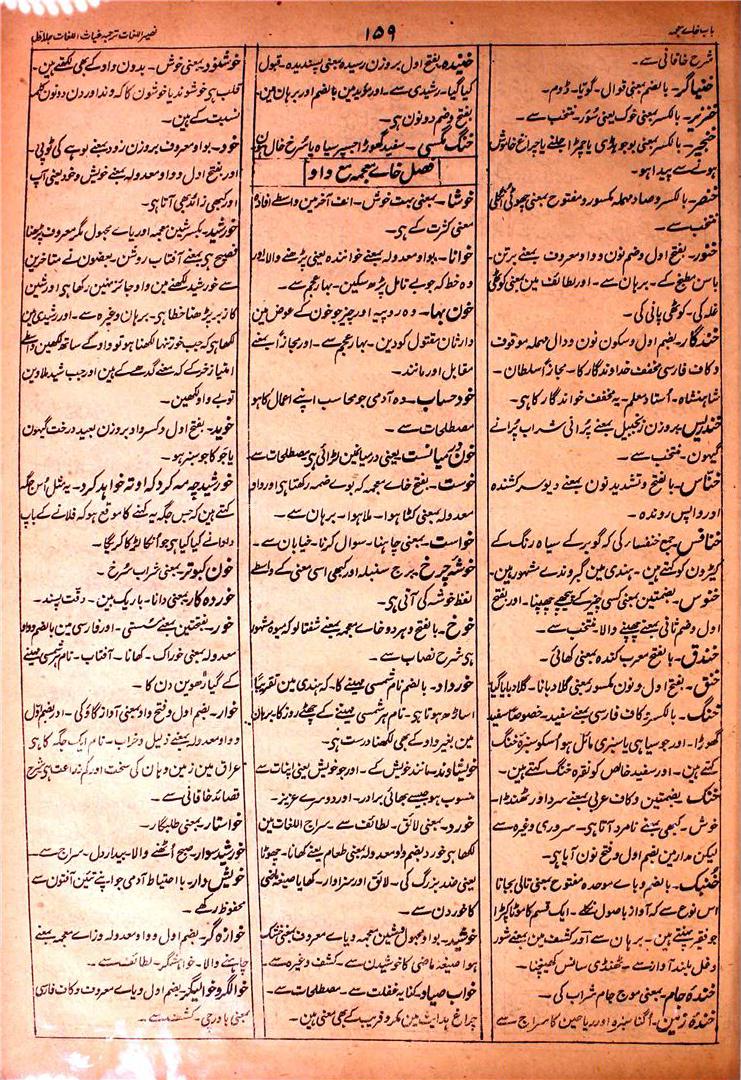 باب خاے معجمہ
۱۵۹
نصیر اللغات ترجمہ غیاث اللغات جلد اول
شرح خاقانی سے۔
خنیاگر۔ بالضم بمعنی قوال۔ گویا۔ ڈوم۔
خنزیر۔ بالکسر بمعنی خوک یعنی سور۔ منتخب سے۔
خنجیر۔ بالکسر بمعنی بو جو ہڈی یا چمڑا جلنے یا چراغ خاموش
ہونے سے پیدا ہو۔
خنصر۔ بالکسر و صاد مہملہ مکسور و مفتوح بمعنی چھوٹی انگلی
منتخب سے۔
خنور۔ بفتح اول و ضم نون و واو معروف بمعنے برتن۔
باسن مطبخ کے۔ برہان سے۔ اور لطائف مین بمعنی کوٹھی
غلہ کی۔ کوٹھی پانی کی۔
خندگار۔ بضم اول و سکون نون و دال مہملہ موقوف
و کاف فارسی مخفف خداوندگار کا۔ مجازاً سلطان۔
شاہنشاہ۔ اُستاد معلم۔ یہ مخفف خواندگار کا ہی۔
خندریس۔ بروزن زنجبیل بمعنے پُرانی شراب پُرانے
گیہون۔ منتخب سے۔
خنّاس۔ بالفتح و تشدید نون بمعنے دیو سرکشندہ
اور واپس روندہ۔
خنافس۔ جمع خنفساء کی کہ گوبر کے سیاہ رنگ کے
کیڑون کو کہتے ہین۔ ہندی مین گبروندے مشہور ہین۔
خنوس۔ بضمتین بمعنی کسی چیز کے پیچھے چھپنا۔ اور بفتح
اول و ضم ثانی بمعنے چھپنے والا۔ منتخب سے۔
خندق۔ بالفتح معرب کندہ بمعنی کھائی۔
خنق۔ بفتح اول و نون مکسور بمعنی گلا دبانا۔ گلا دبایا گیا
خنگ۔ بالکسر و کاف فارسی بمعنے سفید۔ خصوصاً سفید
گھوڑا۔ اور جو سیاہی یا سبزی مائل ہو اُسکو سبزہ خنگ
کہتے ہین۔ اور سفید خالص کو نقرہ خنگ کہتے ہین۔
خنک۔ بضمتین و کاف عربی بمعنے سرد اور ٹھنڈا۔
خوش۔ کبھی بمعنے نامرد آتا ہی۔ سروری وغیرہ سے
لیکن مدار مین بضم اول و فتح نون آیا ہی۔
خنبک۔ بالضم و باے موحدہ مفتوح بمعنی تالی بجانا
اس نوع سے کہ آواز باصول نکلے۔ ایک قسم کا موٹا کپڑا
جو فقیر پہنتے ہین۔ برہان سے اور کشف مین بمعنے شور
و غل بلند آواز سے۔ ٹھنڈی سانس کھینچنا۔
خندۂ جام۔ بمعنی موج جام شراب کی۔
خندۂ زمین۔ اُگنا سبزہ اور ریاحین کا سراج سے
خنیدہ بفتح اول بروزن رسیدہ بمعنی پسندیدہ۔ قبول
کیا گیا۔ رشیدی سے۔ اور مؤید مین بالضم اور برہان مین۔
بفتح و ضم دونون ہی۔
خنگ مگسی۔ سفید گھوڑا جسپر سیاہ یا سُرخ خال ہون
فصل خاے معجمہ مع واو
خوشا۔ بمعنی بہت خوش۔ الف آخر مین واسطے افادۂ
معنی کثرت کے ہی۔
خوانا۔ بواو معدولہ بمعنے خوانندہ یعنی پڑھنے والا اور
وہ خط کہ جو بے تامل پڑھ سکین۔ بہار عجم سے۔
خون بہا۔ وہ روپیہ اور چیز جو خون کے عوض مین
وارثان مقتول کو دین۔ بہار عجم سے۔ اور مجازاً بمعنے
مقابل اور مانند۔
خود حساب۔ وہ آدمی جو محاسب اپنے اعمال کا ہو
مصطلحات سے۔
خون درمیانست یعنی درمیانین لڑائی ہی مصطلحات سے
خوست۔ بفتح خاے معجمہ کہ بوے ضمہ رکھتا ہی اور واو
معدولہ بمعنی کٹا ہوا۔ ملا ہوا۔ برہان سے۔
خواست۔ بمعنی چاہنا۔ سوال کرنا۔ خیابان سے۔
خوشۂ چرخ۔ برج سنبلہ اور کبھی اسی معنی کے واسطے
لفظ خوشہ کی آتی ہی۔
خوخ۔ بالفتح و ہر دو خاے معجمہ بمعنے شفتالو کہ میوہ مشہور
ہی شرح نصاب سے۔
خورداد۔ بالضم نام شمسی مہینے کا۔ کہ ہندی مین تقریباً
اساڑھ ہوتا ہی۔ نام ہر شمسی مہینے کے چھٹے روز کا۔ برہان
مین بغیر واو کے بھی لکھنا درست ہی۔
خویشاوند۔ مانند خویش کے۔ اور جو خویش یعنی اپنا سے
منسوب ہو جیسے بھائی برادر۔ اور دوسرے عزیز۔
خورد۔ بمعنی لائق۔ لطائف سے۔ سراج اللغات مین
لکھا ہی خورد بضم و واو معدولہ بمعنی طعام یعنے کھانا۔ چھوٹا
یعنی ضد بزرگ کی۔ لائق اور سزاوار۔ کھایا صیغہ ماضی
کا خوردن سے۔
خوشید۔ بواو مجہول و شین معجمہ و یاے معروف بمعنی خشک
ہوا صیغۂ ماضی کا خوشیدن سے۔ کشف وغیرہ سے۔
خواب صیاد کنایہ غفلت سے۔ مصطلحات سے۔
چراغ ہدایت مین مکر و فریب کے بھی معنی ہین۔
خوشنود بمعنی خوش۔ بدون واو کے بھی لکھتے ہین۔
قلب ہی خوشوند یا خوشون کا کہ وند اور دن دونون کلمے
نسبت کے ہین۔
خود۔ بواو معروف بروزن زود بمعنے لوہے کی ٹوپی۔
اور بفتح اول و واو معدولہ بمعنے خویش و خود یعنی آپ
اور کبھی زائد بھی آتا ہی۔
خورشید۔ بکسر شین معجمہ اور یاے مجہول مگر معروف پڑھنا
فصیح ہی بمعنے آفتاب روشن۔ بعضون نے متاخرین
سے خورشید لکھنے مین واو جائز نہین رکھا ہی اور شین
کا زبر پڑھنا خطا ہی۔ برہان وغیرہ سے۔ اور رشیدی مین
لکھا ہی کہ جب خور تنہا لکھنا ہو تو واو کے ساتھ لکھین واسطے
امتیاز خر کے کہ معنے گدھے کے ہین اور جب شید ملا وین
تو بے واو لکھین۔
خوید۔ بفتح اول و کسر واو بروزن بعید درخت گیہون
یا جو کا جو سبز ہو۔
خورشید چہ مہ کرد کہ او تہ خواہد کرد۔ یہ مثل اُس جگہ
کہتے ہین کہ جس جگہ یہ کہنے کا موقع ہو کہ فلانے کے باپ
دادا نے کیا کیا ہی جو اُنکا لڑکا کریگا۔
خون کبوتر۔ بمعنی شراب سُرخ۔
خوردہ کار۔ بمعنی دانا۔ باریک بین۔ دقت پسند۔
خور۔ بفتحتین بمعنے سُستی۔ اور فارسی مین بالضم و واو
معدولہ بمعنی خوراک۔ کھانا۔ آفتاب۔ نام ہر شمسی مہینے
کے گیارھوین دن کا۔
خوار۔ بضم اول و فتح واو بمعنی آواز گاؤ کی۔ اور بضم اول
و واو معدولہ بمعنے ذلیل و خراب۔ نام ایک جگہ کا ہی
عراق مین زمین وہان کی سخت اور کم زراعت ہی شرح
قصائد خاقانی سے۔
خواستار۔ بمعنی طلبگار۔
خورشید سوار۔ صبح اُٹھنے والا۔ بیدار دل۔ سراج سے۔
خویش دار۔ با احتیاط آدمی جو اپنے تئین آفتون سے
محفوظ رکھے۔
خوازہ گر۔ بضم اول و واو معدولہ و زاے معجمہ بمعنے
چاہنے والا۔ خواہشگر۔ لطائف سے۔
خوالگر و خوالیگر۔ بضم اول و یاے معروف و کاف فارسی
بمعنی باورچی۔ کشف سے۔